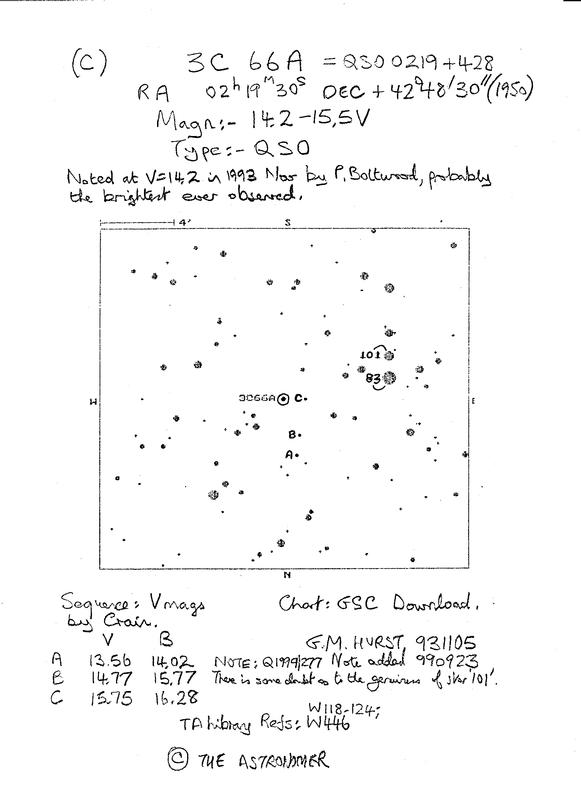 (C) 3C 66A = QSO 0219+428
RA 02h 19m 30s DEC + 42° 48' 30" (1950)
Magn:- 14.2-15.5V
Type:- QSO
Noted at V=14.2 in 1993 Nov by P. Boltwood, probably
the brightest ever observed.
4' S
101
83
W 3C66A C E
B
A
N
Sequence: Vmags Chart: GSC Download.
by Crain.
V B G.M. HURST, 931105
A 13.56 14.02 NOTE: Q1999/277 Note added 990923
B 14.77 15.77 There is some doubt as to the genuiness of star '101'.
C 15.75 16.28
W118-124;
TA library Refs: W446
© THE ASTRONOMER